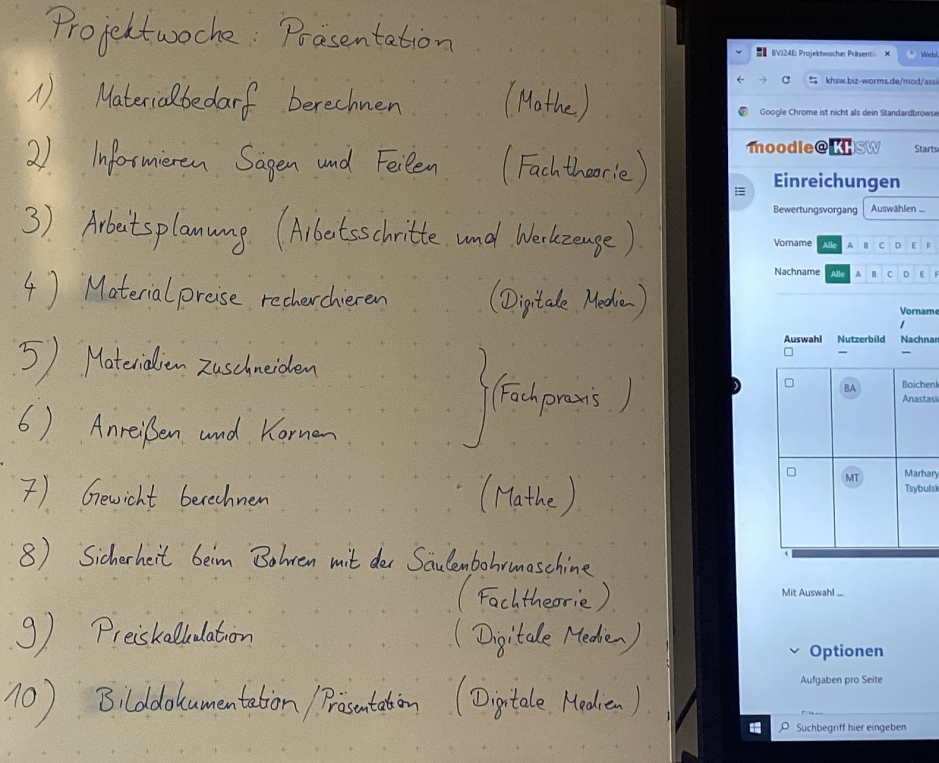 Projektwoche: Präsentation
1) Materialbedarf berechnen (Mathe)
2) Informieren Sägen und Feilen (Fachtheorie)
3) Arbeitsplanung (Arbeitsschritte und Werkzeuge)
4) Materialpreise recherchieren (Digitale Medien)
5) Materialien zuschneiden
} (Fachpraxis)
6) Anreißen und Körnen
7) Gewicht berechnen (Mathe)
8) Sicherheit beim Bohren mit der Säulenbohrmaschine
(Fachtheorie)
9) Preiskalkulation (Digitale Medien)
10) Bilddokumentation/Präsentation (Digitale Medien)
BVJ24E: Projektwoche: Präsent
khsw.biz-worms.de/mod/assi
Google Chrome ist nicht als dein Standardbrowse
moodle@KHSW Starts
Einreichungen
Bewertungsvorgang Auswählen ...
Vorname Alle A B C D E F
Nachname Alle A B C D E F
Vorname
/
Auswahl Nutzerbild Nachnan
BA Boichenk
Anastasi
MT Marhary
Tsybulsk
Mit Auswahl ...
Optionen
Aufgaben pro Seite
Suchbegriff hier eingeben